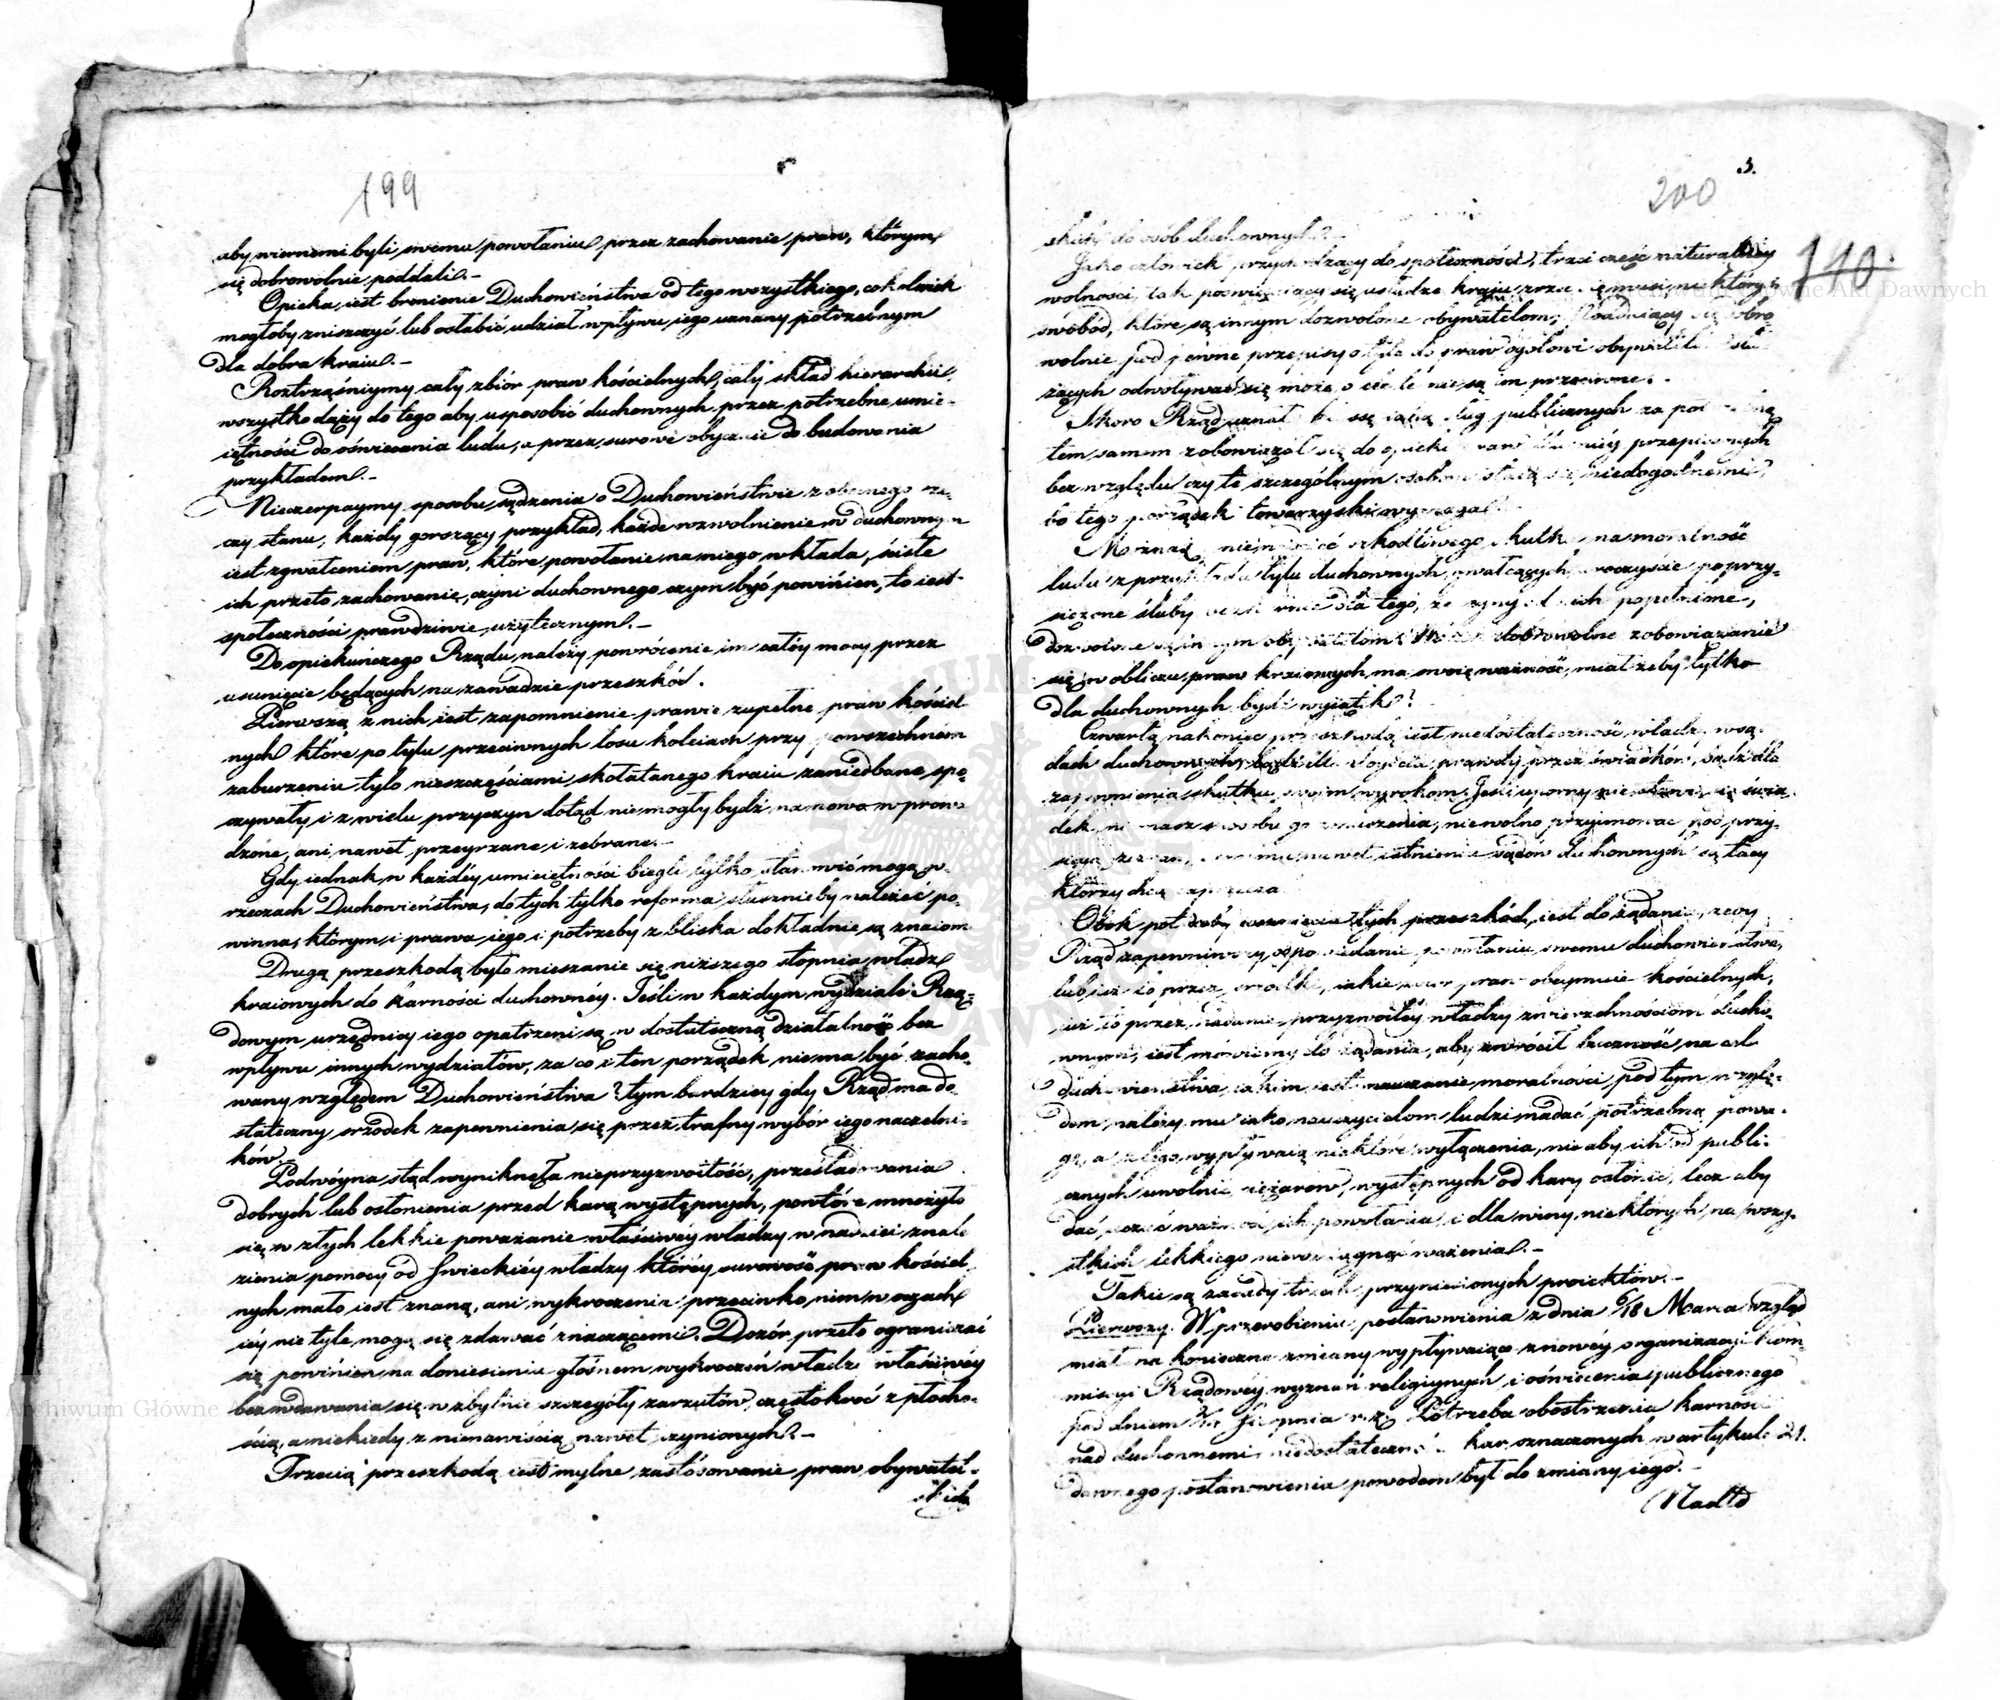 199
aby wiernemi byli swemu powołaniu przez zachowanie praw, którym
się dobrowolnie poddali.-
Opieka jest bronienie Duchowieństwa od tego wszystkiego, cokolwiek
mogłoby zniszczyć lub osłabić udział wpływu jego uznany potrzebnym
dla dobra kraiu.-
Roztrząśniymy cały zbiór praw kościelnych, cały skład hierarchii,
wszystko dąży do tego aby usposobić duchownych przez potrzebne umie-
iętności do oświecania ludu, a przez surowe obyczaie do budowania
przykładem.-
Nieczerpaymy sposobu sądzenia o Duchowieństwie z obcnego
czy stanu, każdy gorszący przykład, każde rozwolnienie w duchownym
iest zgwałceniem praw, które powołanie na niego wkłada, ścisłe
ich przeto zachowanie, czyni duchownego czym być powinien, to iest
społeczności prawdziwie użytecznym.-
Do opiekuńczego Rządu należy powrócenie im całéy mocy przez
usunięcie będących na zawadzie przeszkód.
Pierwszą z nich iest zapomnienie prawie zupełne praw kościel
nych które po tylu przeciwnych losu kolejach przy powszechném
zaburzeniu tylo nieszczęściami skołatanego kraiu zaniedbane spo-
czywały i z wielu przyczyn dotąd nie mogły bydź na nowo wprowa
dzone, ani nawet przeyrzane i zebrane.-
Gdy iednak w każdéy umieiętności biegli tylko stanowić mogą, w
rzeczach Duchowieństwa, do tych tylko reforma słusznie by należeć po-
winna, którym i prawa iego i potrzeby z bliska dokładnie są znaiome
Drugą przeszkodą było mieszanie się niższego stopnia władz
kraiowych do karności duchownéy. Jeśli w każdym wydziale Rzą-
dowym urzędnicy iego opatrzeni są w dostateczną działalność bez
wpływu innych wydziałów, za co i ten porządek niema być zacho-
wany względem Duchowieństwa? tym bardziey gdy Rząd ma do-
stateczny srzodek zapewnienia się przez trafny wybór iego naczelni-
ków.
Podwóyna stąd wyniknęła nieprzyzwoitość, prześladowania
dobrych lub osłonienia przed karą występnych, powtóre mnożyło
się w złych lekkie poważanie właściwéy władzy w nadziei znale
zienia pomocy od świeckiéy władzy któréy surowość praw kościel
nych mało iest znaną, ani wykroczenia przeciwko nim w oczach
iéy nie tyle mogą się zdawać znaczącemi. Dozór przeto ograniczać
się powinien na doniesieniu głośnem wykroczeń władzi właściwéy
bez wdawania się w zbytnie szczegóły zarzutów, częstokroć z płocho-
ścią, a niekiedy z nienawiścią nawet czynionych.-
Trzecią przeszkodą iest mylne zastósowanie praw obywatel-
skich
200
3.
190.
skich do osób duchownych.-
Jako człowiek przychodzący do społeczności, traci część naturalnéy
wolności, tak poświęcający się usłudze kraju, zrzec się musi niektórych
swobód, które są innym dozwolone obywatelom; Poddający się dobro
wolnie pod pewne przepisy o tyle do praw ogołowi obywateli słu-
żących odwoływać się może, o ile te nie są im przeciwne.
Skoro Rząd uznał sług publicznych za
tem samem zobowiązał się do opieki przepisanych
bez względu czy te szczególnym osobom niedogodnemi,
bo tego porządek towarzyski wymaga.
Możnaż nie szkodliwego skutku na moralność
ludu z przykładu tylu duchownych, gwałcących uroczyście poprzy-
siężone śluby dla tego, że czyny od nich popełnione,
dozwolone są innym obywatelom? dobrowolne zobowiązanie
się w obliczu praw kraiowych, ma swoię ważność, miałżeby tylko
dla duchownych bydź wyiątek?
Czwartą nakoniec przeszkodą iest niedostateczność władzy w są-
dach duchownych, bądź dla doyścia prawdy przez świadków, bądź dla
zapewnienia skutku swoim wyrokom. Jeśli uporny nie stawi się świa-
dek, ni masz sposobu go zmuszenia, nie wolno przyimować pod przy-
sięgą nawet istnienia sądów duchownych są tacy
którzy chcą
Obok potrzeby usunięcia tych przeszkód, iest do żądania, żeby
Rząd zapewniwszy odpowiadanie powołaniu swemu duchowieństwa,
lub iuż to przez środki, iakie zbiór praw obeymuie kościelnych,
iuż to przez nadanie przyzwoitéy władzy zwierzchnościom ducho-
wnym, iest mówiemy do żądania, aby zwrócił baczność na cel
duchowieństwa, iakim iest nauczanie moralności, pod tym wzglę-
dem należy mu iako nauczycielom ludzi nadać potrzebną powa-
gę, a z tego wypływaią niektóre wyłączenia, nie aby ich od publi-
cznych uwolnić ciężarów, występnych od kary osłonić, lecz aby
dać uczuć ważność ich powołania, i dla winy niektórych, na wszy-
stkich lekkiego nierozciągnąć ważenia.-
Takie są zasady trzech przyniesionych proiektów.-
Pierwszy. W przerobieniu postanowienia z dnia 6/18 Marca względ
miał na konieczne zmiany wypływaiące z nowéy organizacyi Kom-
missyi Rządowéy wyznań religiynych i oświecenia publicznego
pod dniem Sierpnia Potrzeba obostrzenia karności
nad duchownemi, niedostateczność kar oznaczonych w artykule 21.
dawnego postanowienia powodem był do zmiany iego.-
Nadto